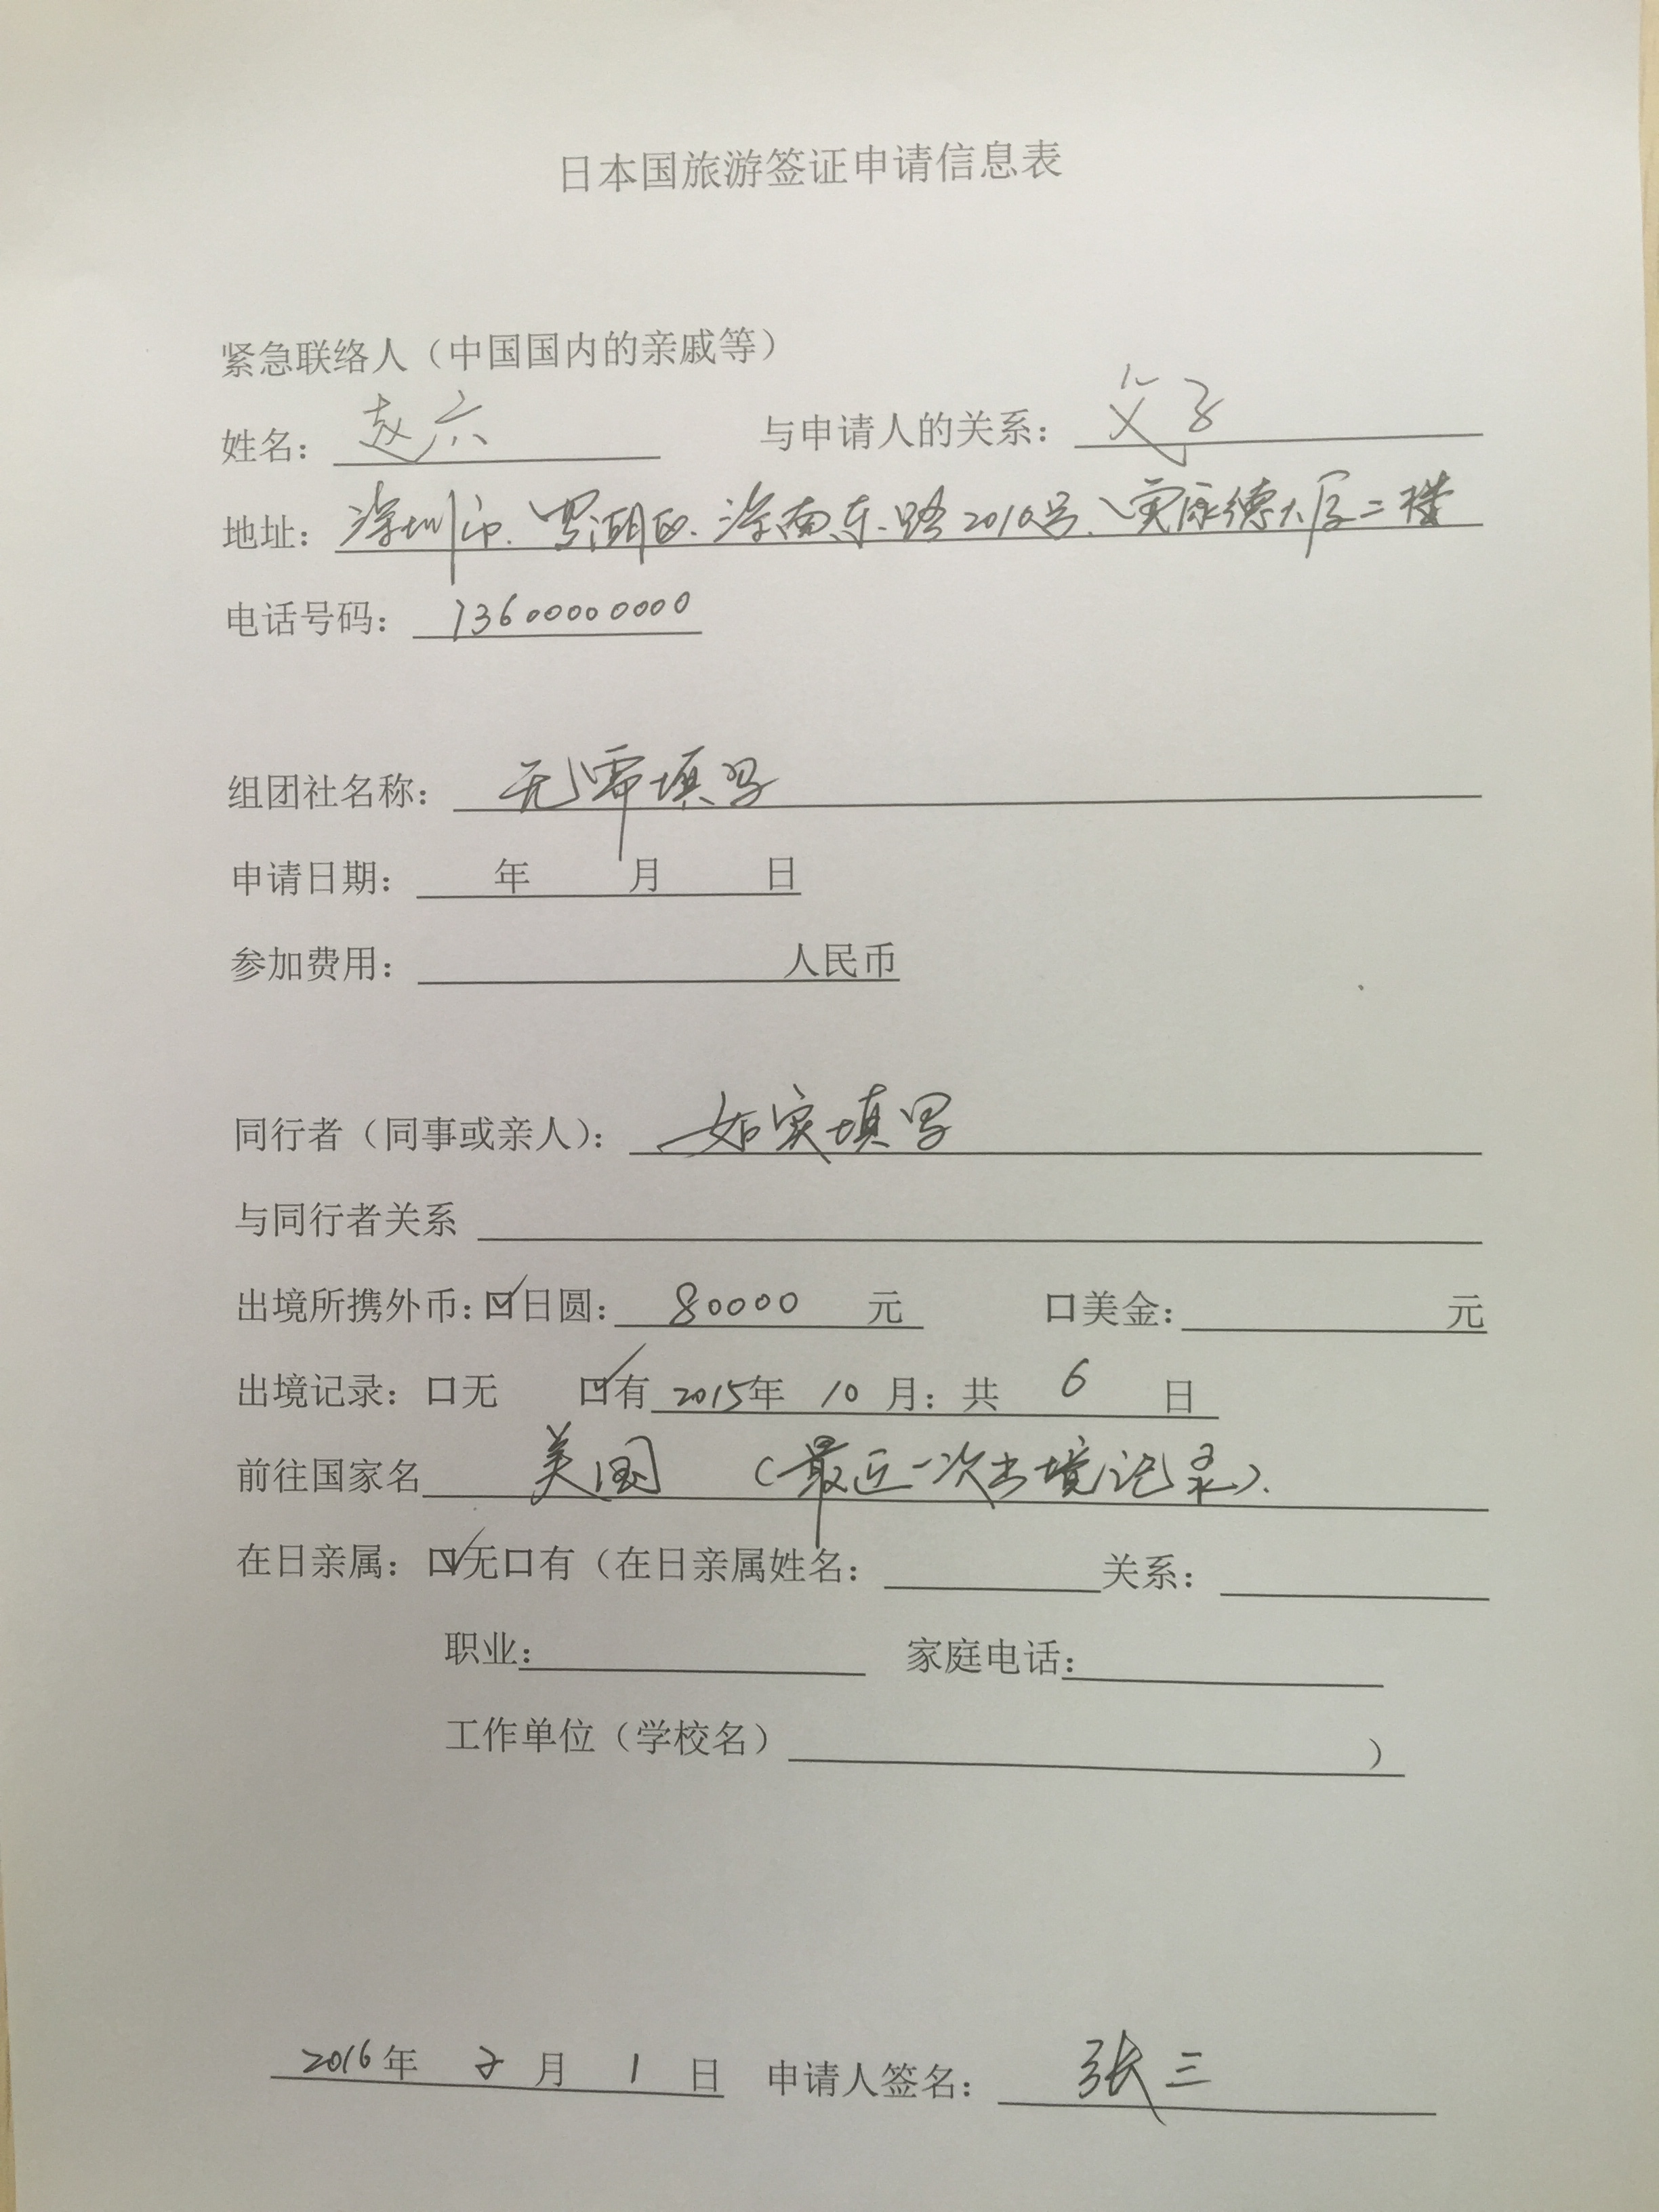 日本国旅游签证申请信息表
紧急联络人（中国国内的亲戚等）
姓名：赵六 与申请人的关系：父子
地址：深圳市、罗湖区、深南东路2010号、寅康德大厦二楼
电话号码：13600000000
组团社名称：无需填写
申请日期： 年 月 日
参加费用： 人民币
同行者（同事或亲人）：如实填写
与同行者关系
出境所携外币：☑日圆：80000 元 口美金： 元
出境记录：口无 ☑有 2015年 10 月：共 6 日
前往国家名 美国 （最近一次出境记录）.
在日亲属：☑无口有（在日亲属姓名： 关系：
职业： 家庭电话：
工作单位（学校名） ）
2016年 2 月 1 日 申请人签名：张三